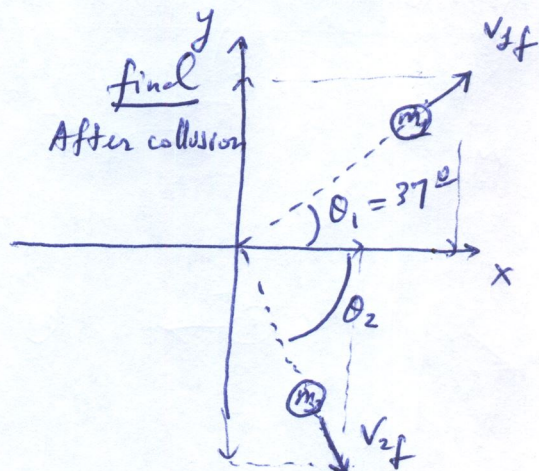 y
V1f
final
After collusion
m1
θ1 = 37°
x
θ2
m2
V2f